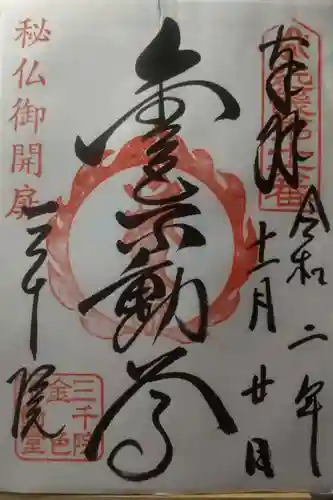 奉拝
令和二年
十一月廿日
金色不動尊
秘仏御開扉
三千院
三千院
金色